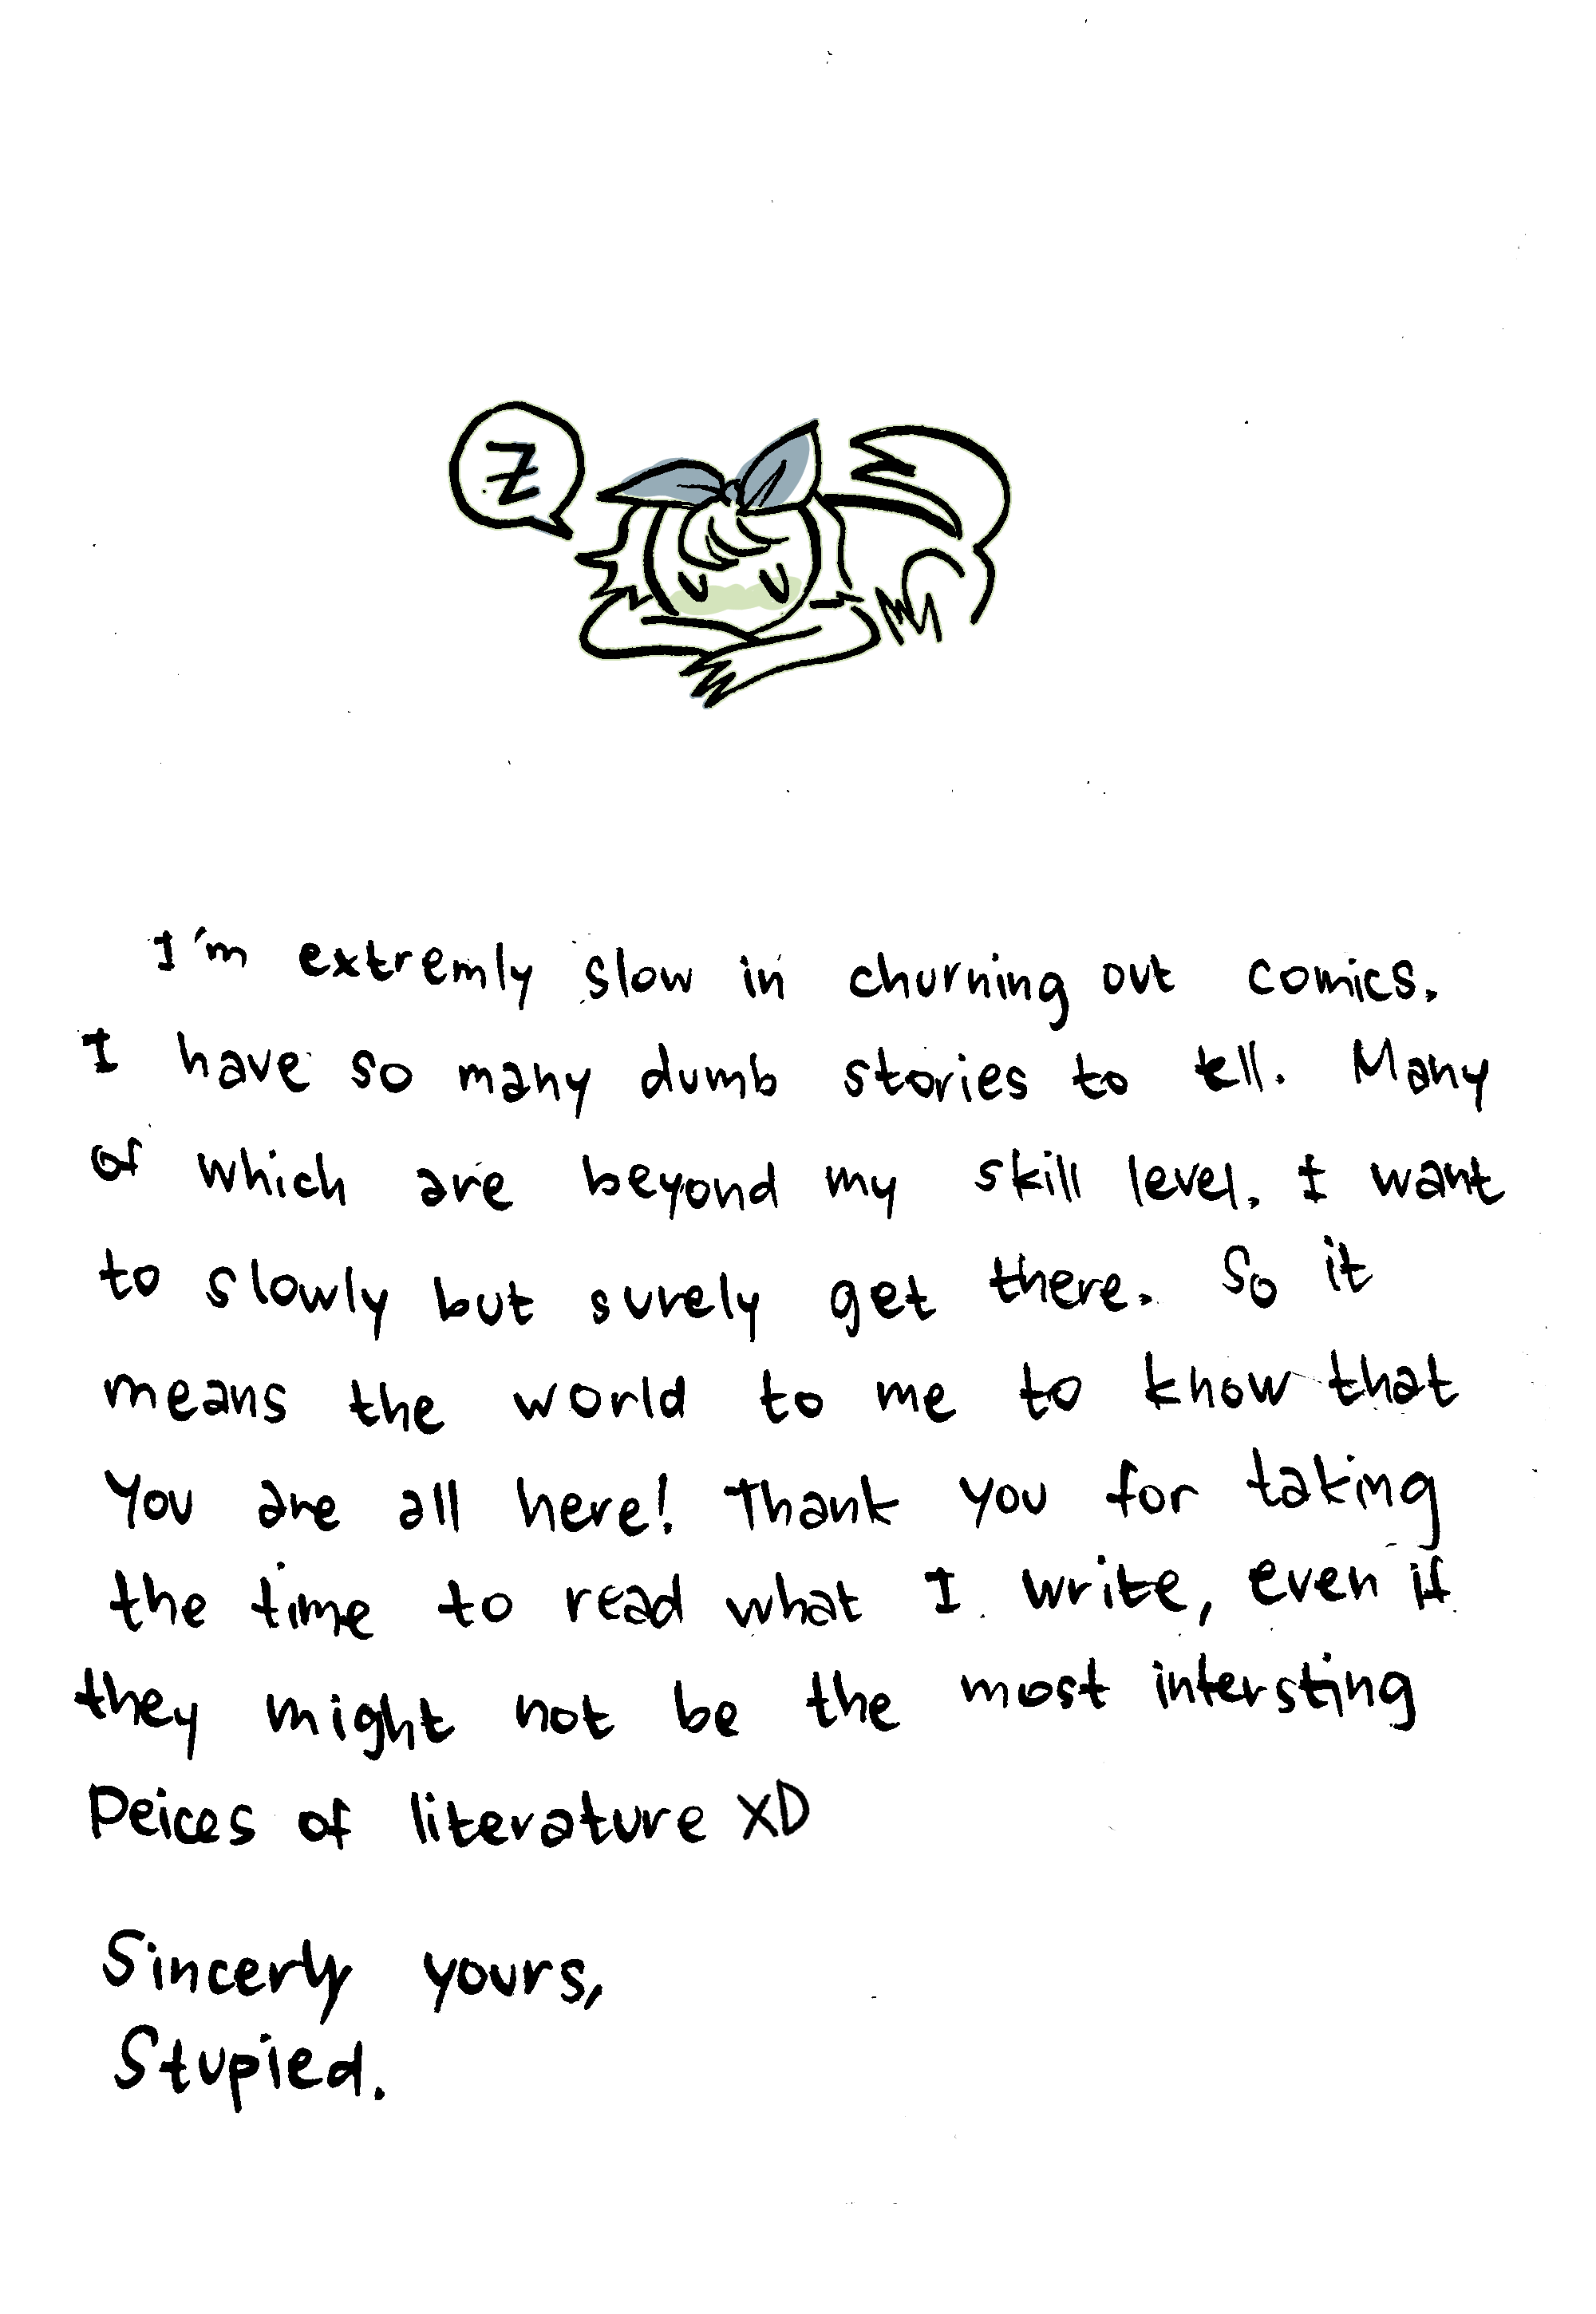 Z
I'm extremly slow in churning out comics.
I have so many dumb stories to tell. Many
of which are beyond my skill level. I want
to slowly but surely get there. So it
means the world to me to know that
You are all here! Thank you for taking
the time to read what I write, even if
they might not be the most intersting
Peices of literature XD
Sincerly yours,
Stupied.